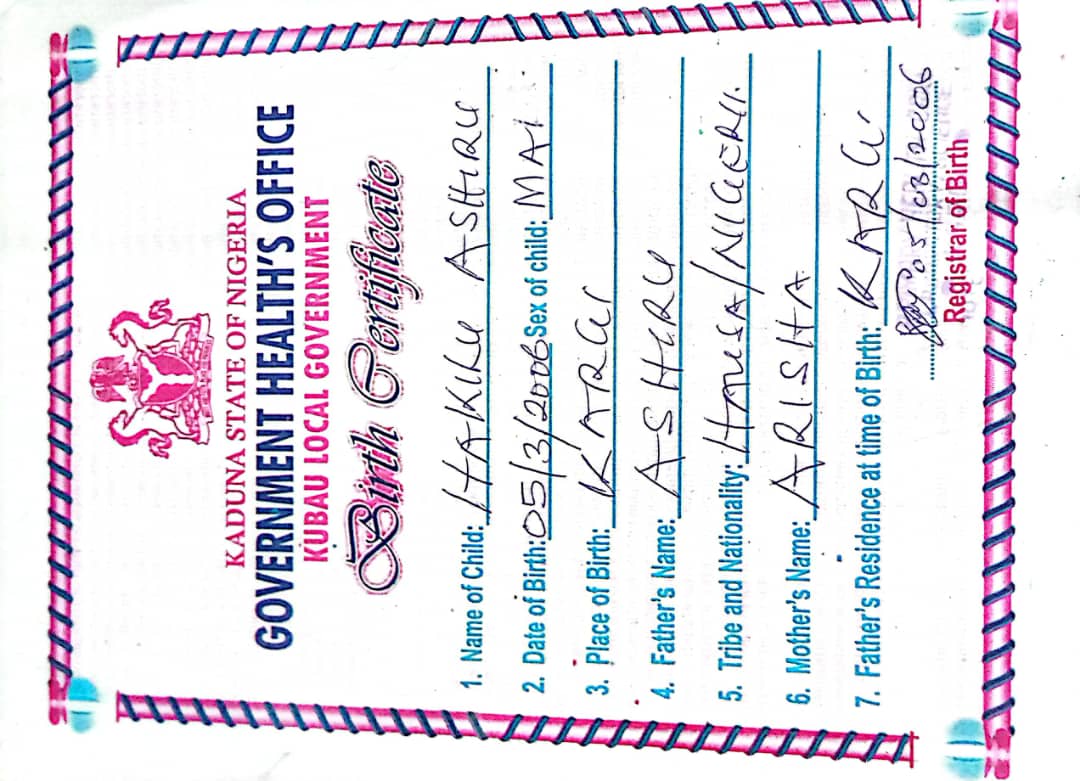 KADUNA STATE OF NIGERIA
GOVERNMENT HEALTH'S OFFICE
KUBAU LOCAL GOVERNMENT
Birth Certificate
1. Name of Child: HAKILU ASHIRU
2. Date of Birth: 05/3/2006 Sex of child: MAL
3. Place of Birth: KARGI
4. Father's Name: ASHIRU
5. Tribe and Nationality: HAUSA/NIGERI.
6. Mother's Name: ARISHA
7. Father's Residence at time of Birth: KARGI
05/03/2006
Registrar of Birth